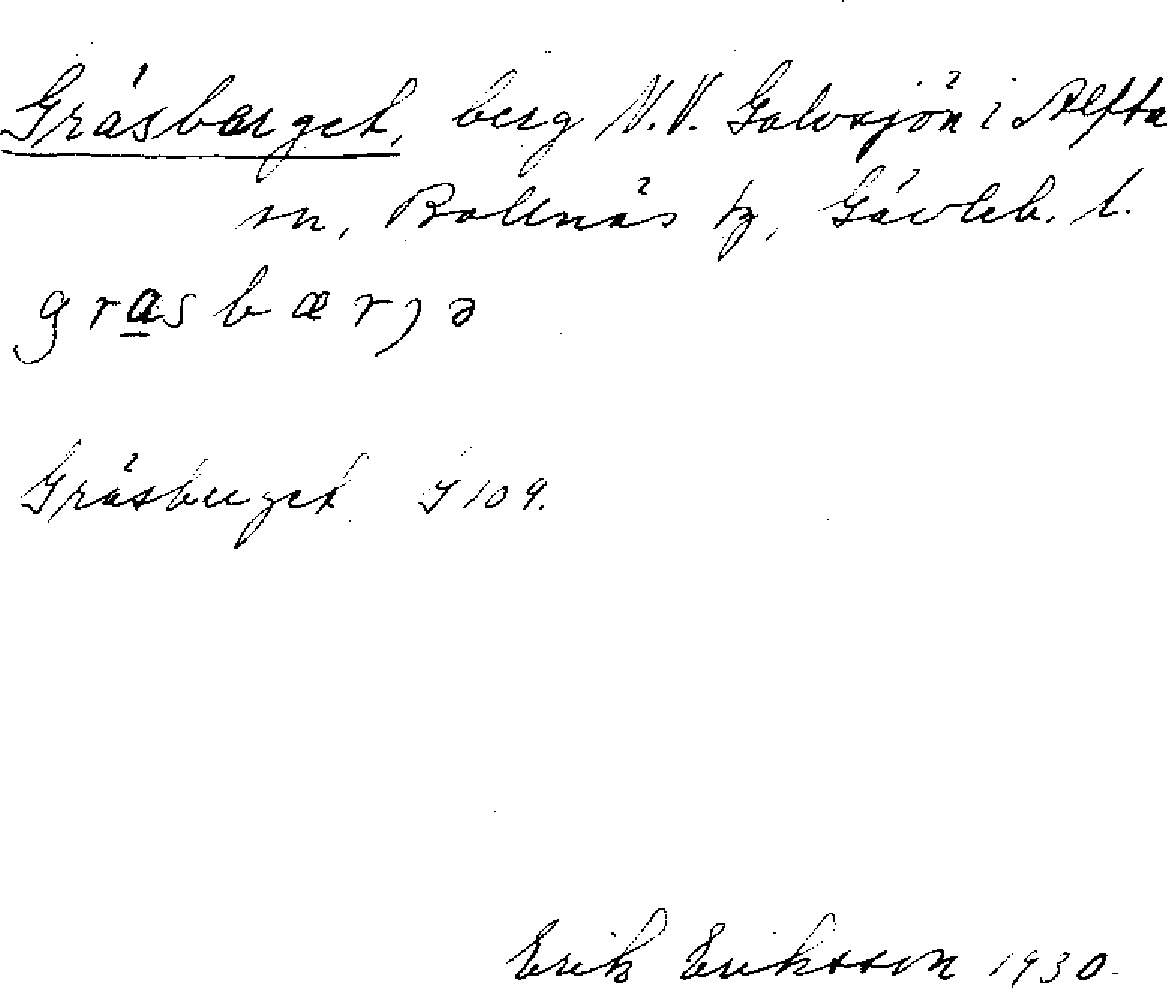 Gräsbærget, berg N.V. Galvsjön i Alfta
sn, Bollnäs tg, Gävleb. l.
grasbærjə
Gräsberget G 109.
Erik Eriksson 1930.